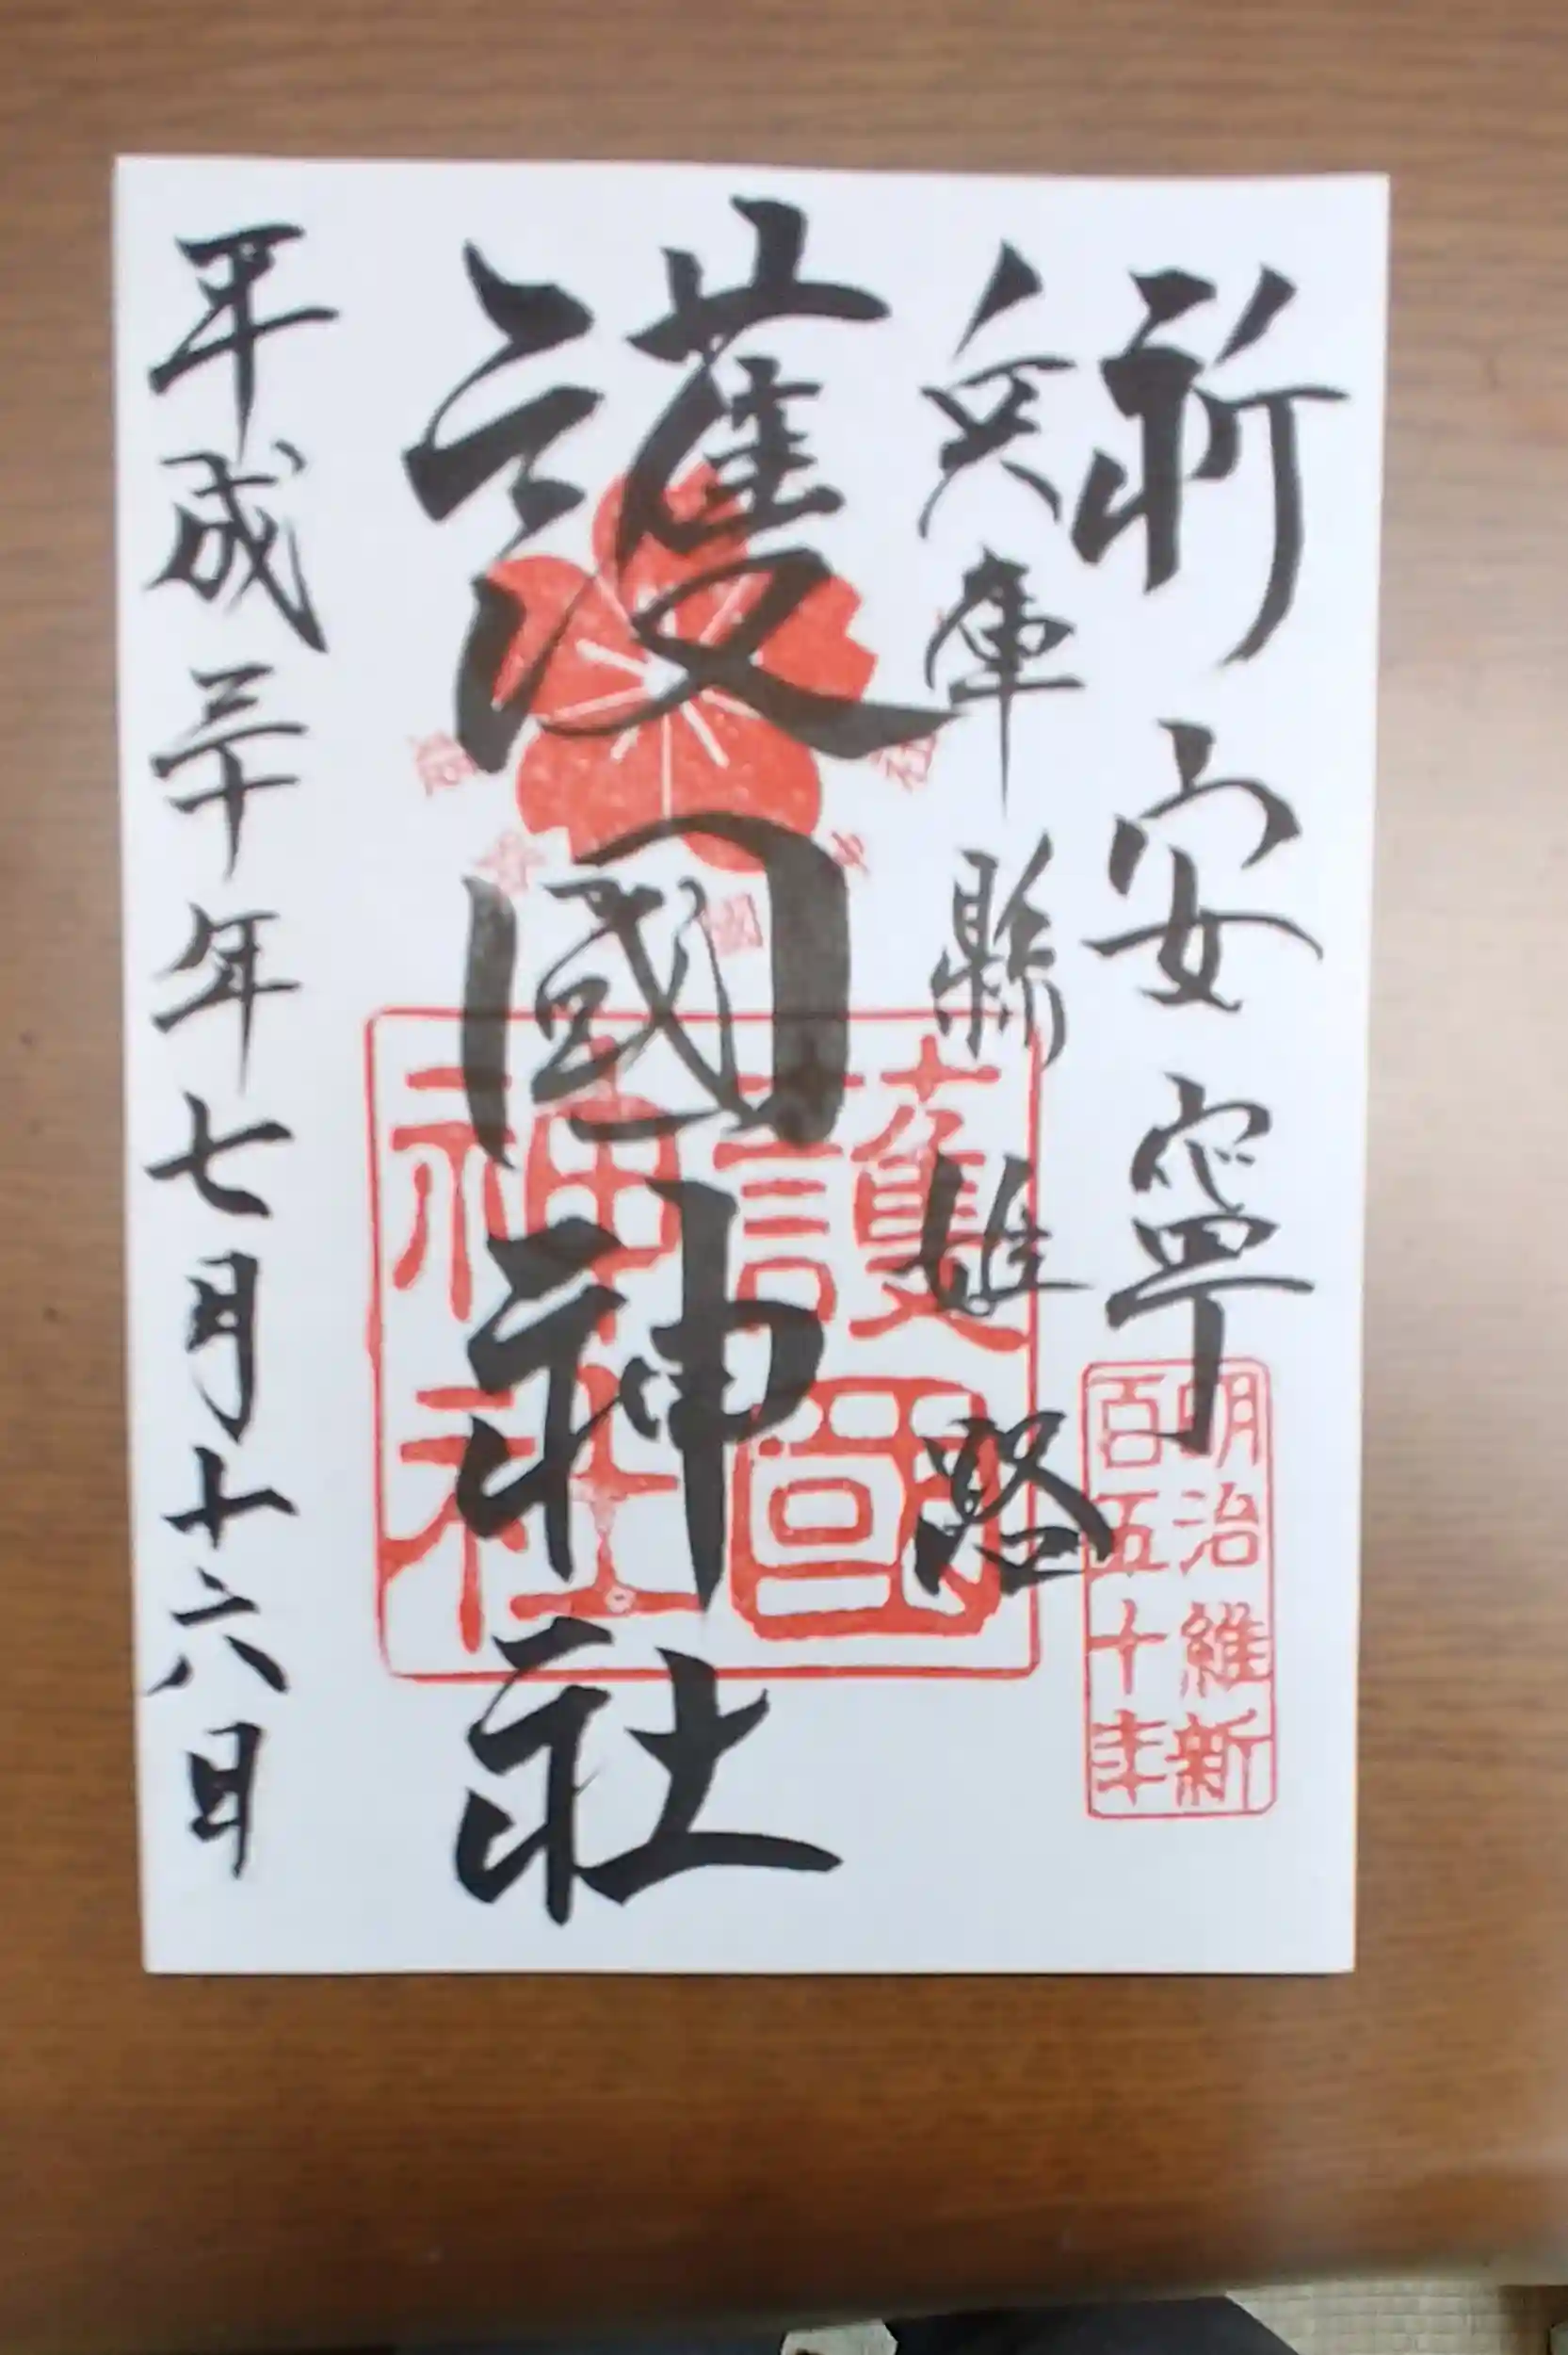 祈安寧
兵庫縣姫路
護國神社
平成三十年七月十六日
明治維新
百五十年
護國
神社